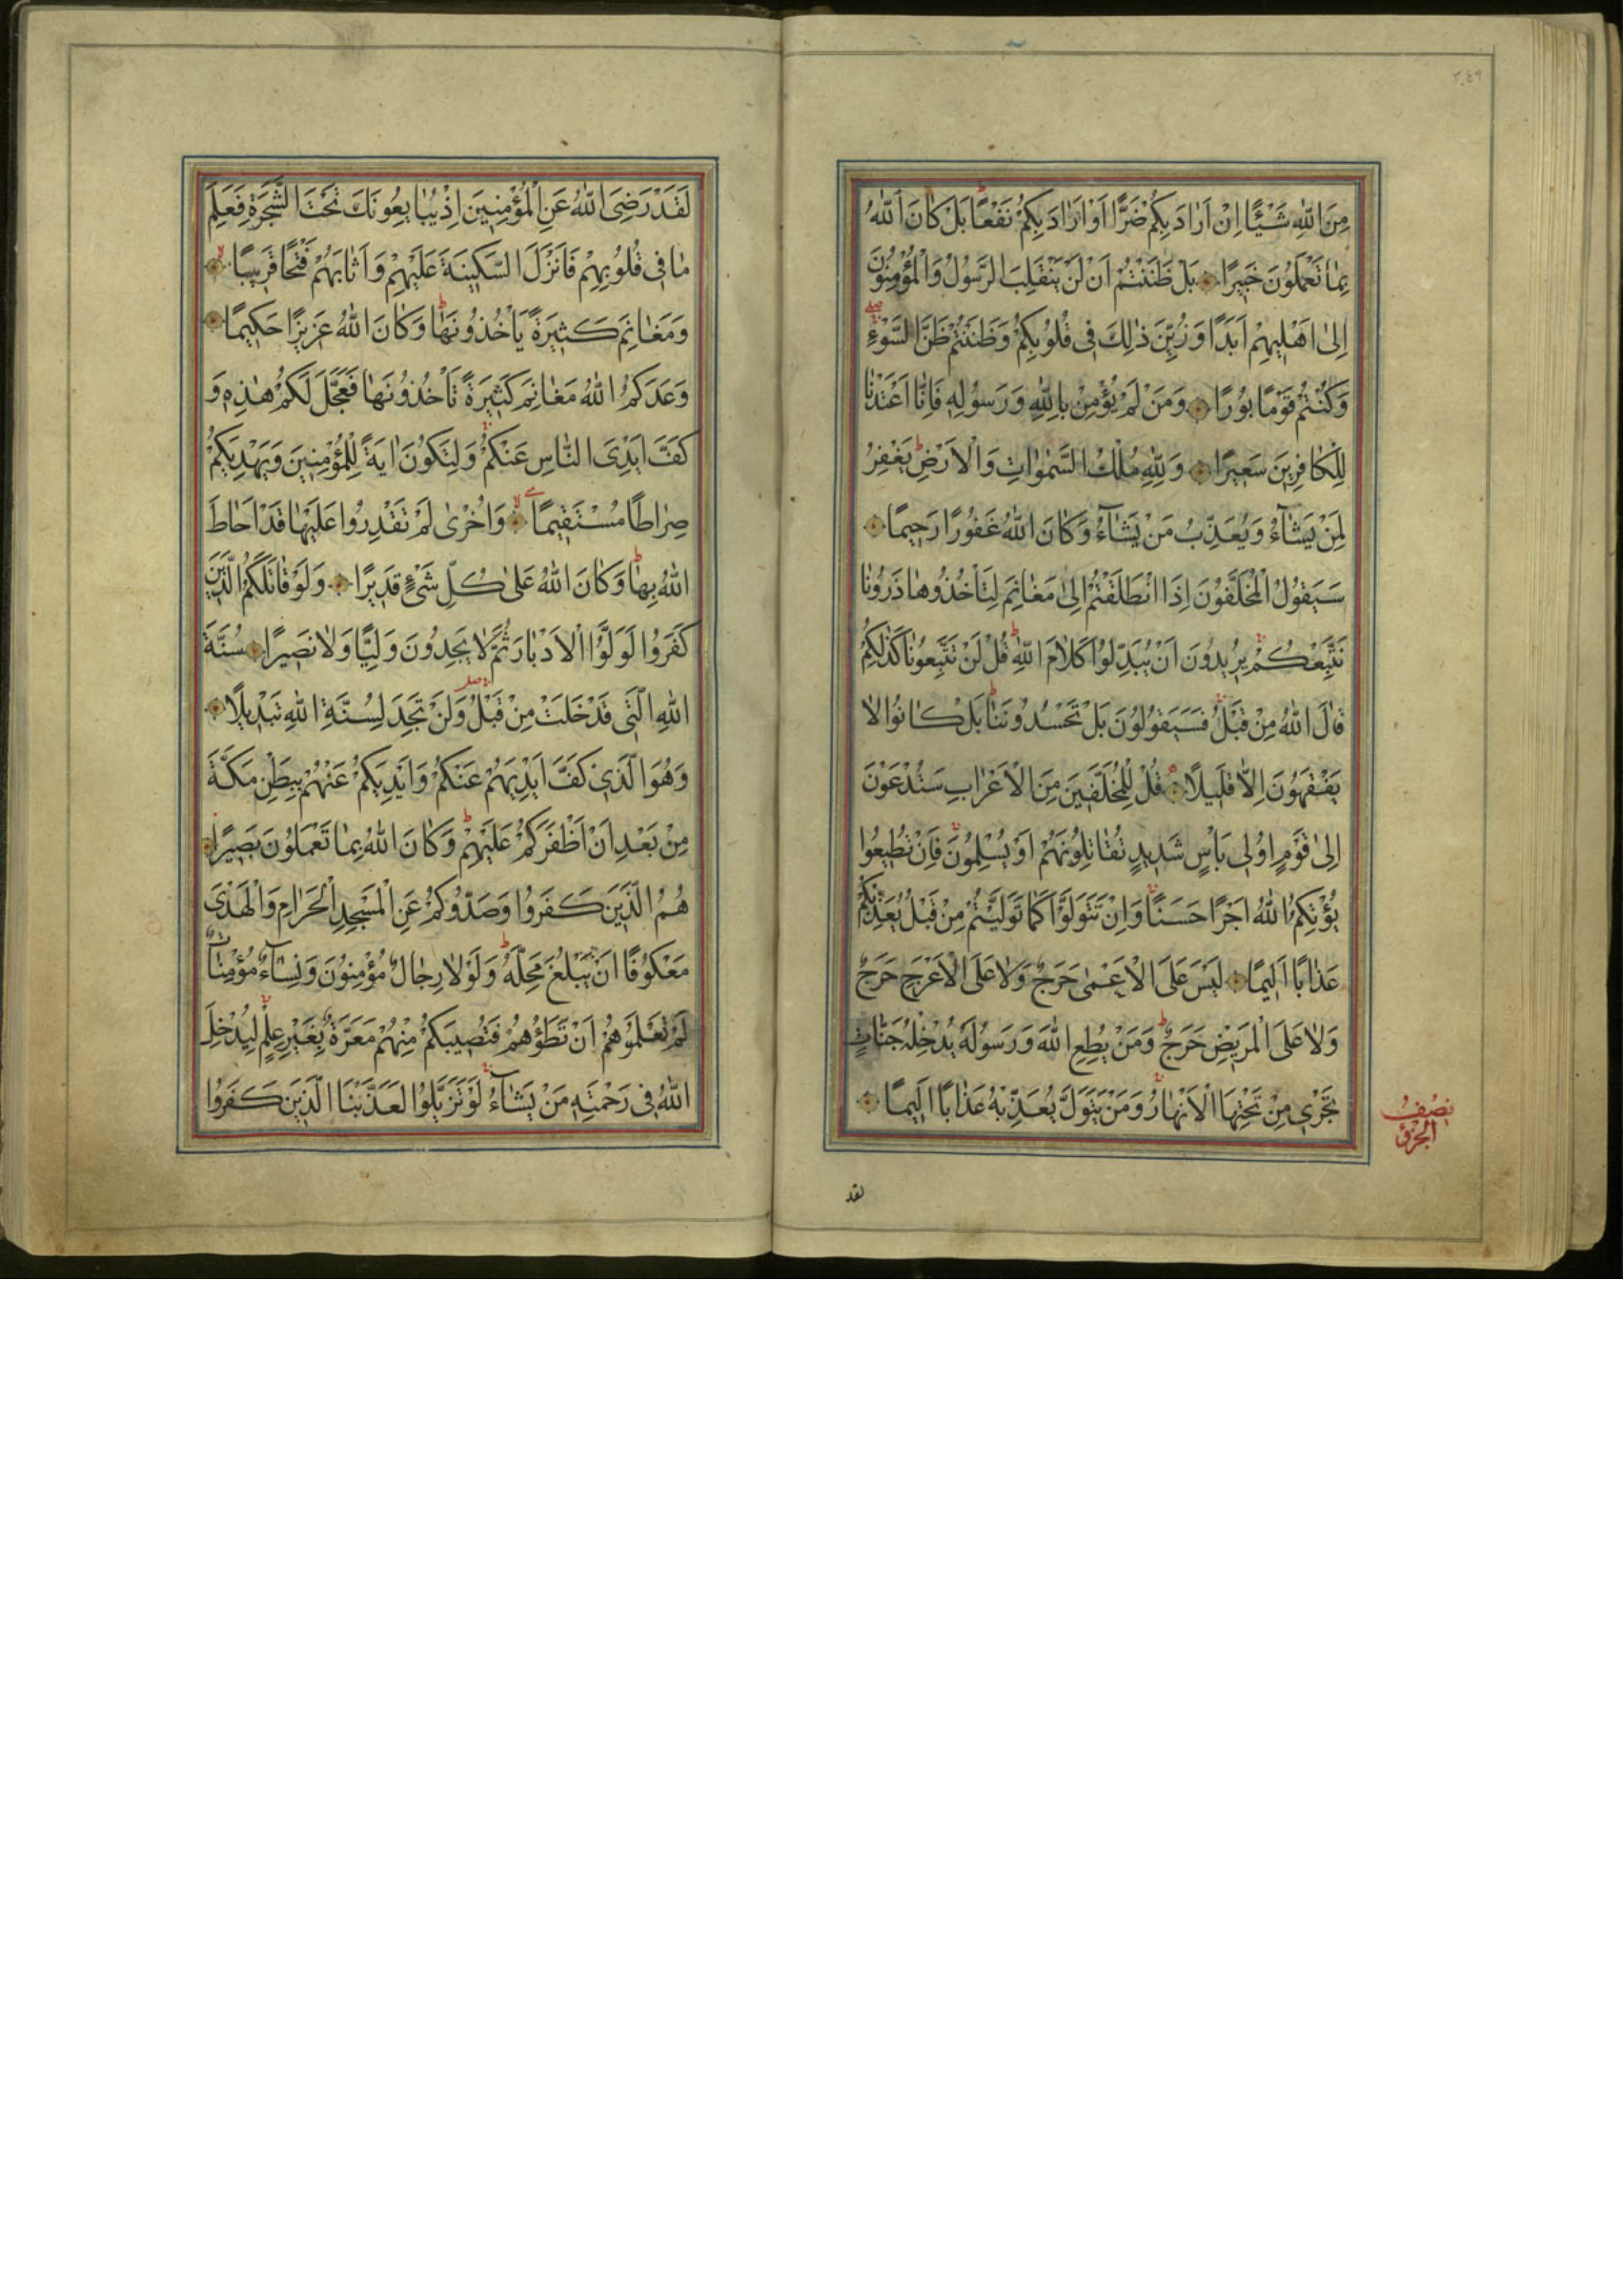 ٢٠٤٩
مِنَ اللّٰهِ شَيْـًٔا اِنْ اَرَادَ بِكُمْ ضَرًّا اَوْ اَرَادَ بِكُمْ نَفْعًا بَلْ كَانَ اللّٰهُ
بِمَا تَعْمَلُونَ خَبِيرًا بَلْ ظَنَنْتُمْ اَنْ لَنْ يَنْقَلِبَ الرَّسُولُ وَالْمُؤْمِنُونَ
اِلٰى اَهْلِيهِمْ اَبَدًا وَزُيِّنَ ذٰلِكَ فِى قُلُوبِكُمْ وَظَنَنْتُمْ ظَنَّ السَّوْءِ
وَكُنْتُمْ قَوْمًا بُورًا وَمَنْ لَمْ يُؤْمِنْ بِاللّٰهِ وَرَسُولِهِ فَاِنَّا اَعْتَدْنَا
لِلْكَافِرِينَ سَعِيرًا وَلِلّٰهِ مُلْكُ السَّمٰوَاتِ وَالْاَرْضِ يَغْفِرُ
لِمَنْ يَشَآءُ وَيُعَذِّبُ مَنْ يَشَآءُ وَكَانَ اللّٰهُ غَفُورًا رَحِيمًا
سَيَقُولُ الْمُخَلَّفُونَ اِذَا انْطَلَقْتُمْ اِلٰى مَغَانِمَ لِتَأْخُذُوهَا ذَرُونَا
نَتَّبِعْكُمْ يُرِيدُونَ اَنْ يُبَدِّلُوا كَلَامَ اللّٰهِ قُلْ لَنْ تَتَّبِعُونَا كَذٰلِكُمْ
قَالَ اللّٰهُ مِنْ قَبْلُ فَسَيَقُولُونَ بَلْ تَحْسُدُونَنَا بَلْ كَانُوا لَا
يَفْقَهُونَ اِلَّا قَلِيلًا قُلْ لِلْمُخَلَّفِينَ مِنَ الْاَعْرَابِ سَتُدْعَوْنَ
اِلٰى قَوْمٍ اُولِى بَأْسٍ شَدِيدٍ تُقَاتِلُونَهُمْ اَوْ يُسْلِمُونَ فَاِنْ تُطِيعُوا
يُؤْتِكُمُ اللّٰهُ اَجْرًا حَسَنًا وَاِنْ تَتَوَلَّوْا كَمَا تَوَلَّيْتُمْ مِنْ قَبْلُ يُعَذِّبْكُمْ
عَذَابًا اَلِيمًا لَيْسَ عَلَى الْاَعْمٰى حَرَجٌ وَلَا عَلَى الْاَعْرَجِ حَرَجٌ
وَلَا عَلَى الْمَرِيضِ حَرَجٌ وَمَنْ يُطِعِ اللّٰهَ وَرَسُولَهُ يُدْخِلْهُ جَنَّاتٍ
تَجْرِى مِنْ تَحْتِهَا الْاَنْهَارُ وَمَنْ يَتَوَلَّ يُعَذِّبْهُ عَذَابًا اَلِيمًا
نصف
الجزؤ
لقد
لَقَدْ رَضِىَ اللّٰهُ عَنِ الْمُؤْمِنِينَ اِذْ يُبَايِعُونَكَ تَحْتَ الشَّجَرَةِ فَعَلِمَ
مَا فِى قُلُوبِهِمْ فَاَنْزَلَ السَّكِينَةَ عَلَيْهِمْ وَاَثَابَهُمْ فَتْحًا قَرِيبًا
وَمَغَانِمَ كَثِيرَةً يَأْخُذُونَهَا وَكَانَ اللّٰهُ عَزِيزًا حَكِيمًا
وَعَدَكُمُ اللّٰهُ مَغَانِمَ كَثِيرَةً تَأْخُذُونَهَا فَعَجَّلَ لَكُمْ هٰذِهِ وَ
كَفَّ اَيْدِىَ النَّاسِ عَنْكُمْ وَلِتَكُونَ اٰيَةً لِلْمُؤْمِنِينَ وَيَهْدِيَكُمْ
صِرَاطًا مُسْتَقِيمًا وَاُخْرٰى لَمْ تَقْدِرُوا عَلَيْهَا قَدْ اَحَاطَ
اللّٰهُ بِهَا وَكَانَ اللّٰهُ عَلٰى كُلِّ شَىْءٍ قَدِيرًا وَلَوْ قَاتَلَكُمُ الَّذِينَ
كَفَرُوا لَوَلَّوُا الْاَدْبَارَ ثُمَّ لَا يَجِدُونَ وَلِيًّا وَلَا نَصِيرًا سُنَّةَ
اللّٰهِ الَّتِى قَدْ خَلَتْ مِنْ قَبْلُ وَلَنْ تَجِدَ لِسُنَّةِ اللّٰهِ تَبْدِيلًا
وَهُوَ الَّذِى كَفَّ اَيْدِيَهُمْ عَنْكُمْ وَاَيْدِيَكُمْ عَنْهُمْ بِبَطْنِ مَكَّةَ
مِنْ بَعْدِ اَنْ اَظْفَرَكُمْ عَلَيْهِمْ وَكَانَ اللّٰهُ بِمَا تَعْمَلُونَ بَصِيرًا
هُمُ الَّذِينَ كَفَرُوا وَصَدُّوكُمْ عَنِ الْمَسْجِدِ الْحَرَامِ وَالْهَدْىَ
مَعْكُوفًا اَنْ يَبْلُغَ مَحِلَّهُ وَلَوْلَا رِجَالٌ مُؤْمِنُونَ وَنِسَآءٌ مُؤْمِنَاتٌ
لَمْ تَعْلَمُوهُمْ اَنْ تَطَؤُهُمْ فَتُصِيبَكُمْ مِنْهُمْ مَعَرَّةٌ بِغَيْرِ عِلْمٍ لِيُدْخِلَ
اللّٰهُ فِى رَحْمَتِهِ مَنْ يَشَآءُ لَوْ تَزَيَّلُوا لَعَذَّبْنَا الَّذِينَ كَفَرُوا